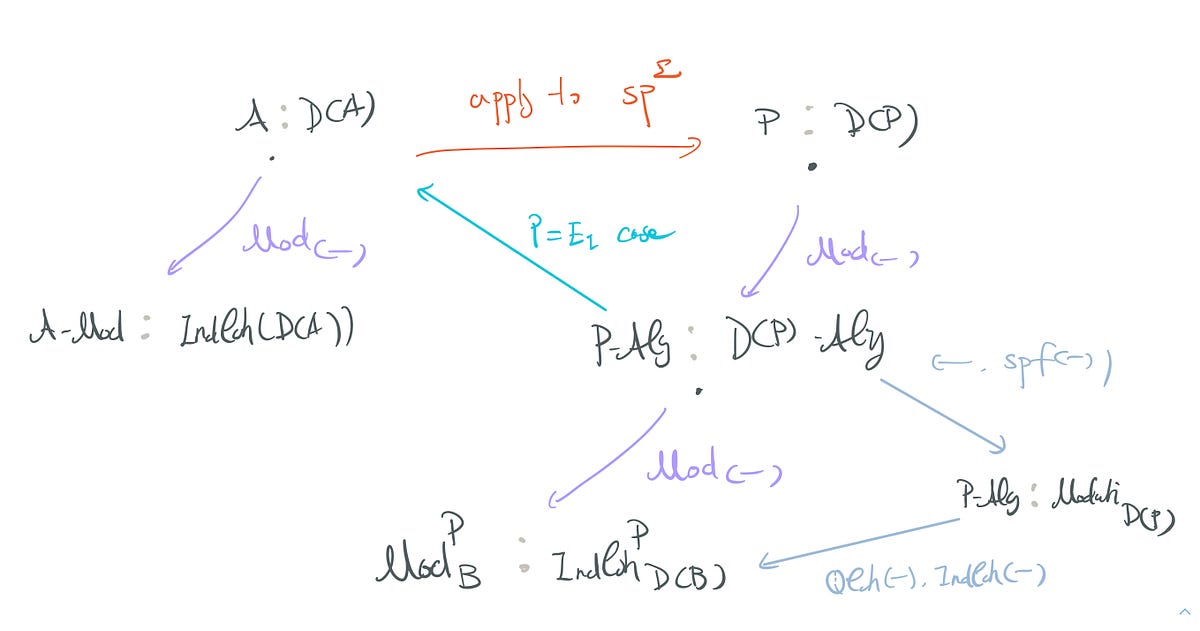 A : D(A)
apply to Sp^Σ
P : D(P)
Mod(-)
P = E_1 case
Mod(-)
A-Mod : IndCoh(D(A))
P-Alg : D(P)-Alg
(-, Spf(-))
Mod(-)
P-Alg : Moduli_D(P)
Mod^P_B : IndCoh^P_D(B)
QCoh(-), IndCoh(-)